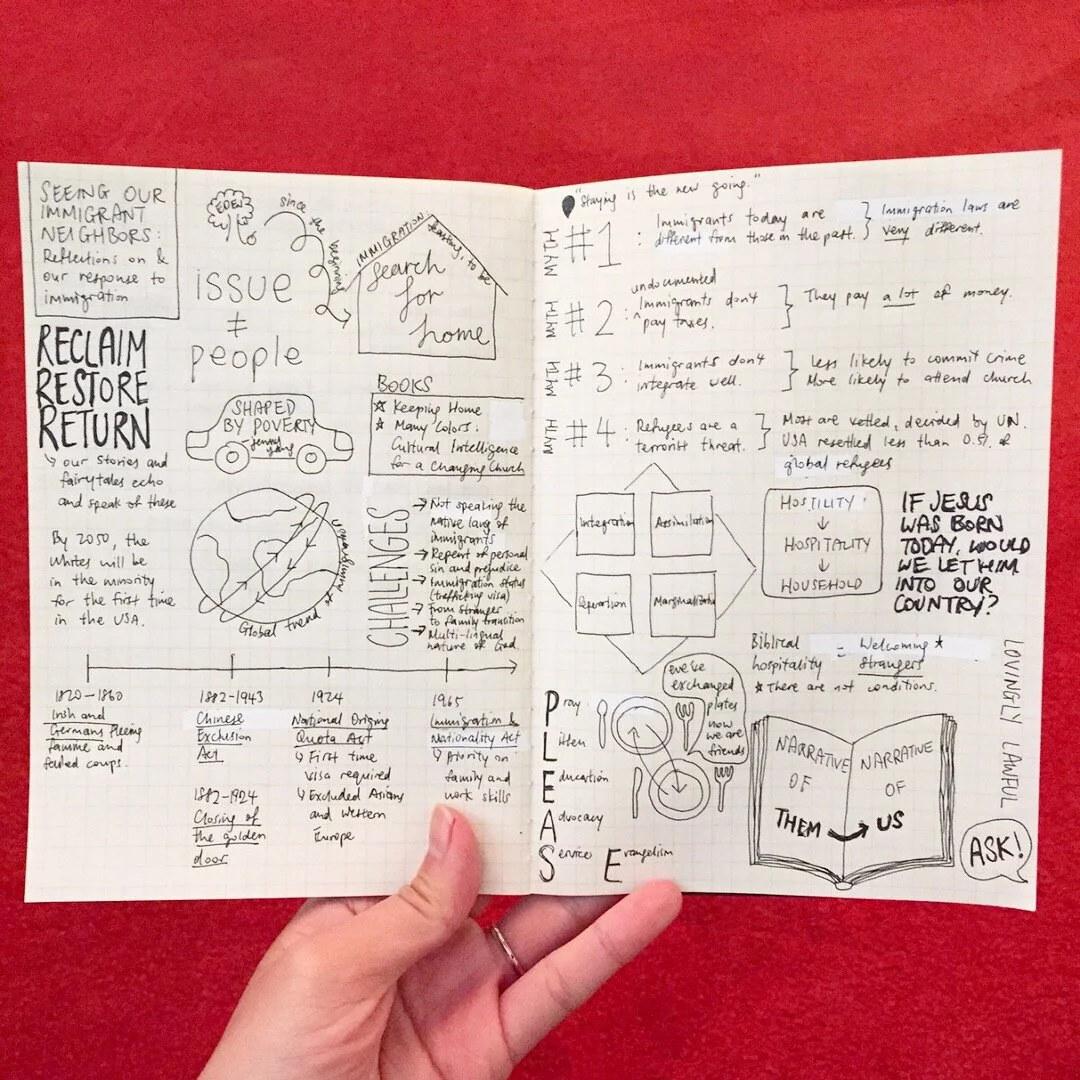 SEEING OUR
IMMIGRANT
NEIGHBORS:
Reflections on &
our response to
immigration
RECLAIM
RESTORE
RETURN
↳ our stories and
fairytales echo
and speak of these
By 2050, the
whites will be
in the minority
for the first time
in the USA.
EDEN
since the beginning
issue
≠
people
IMMIGRATION
search
for
home
SHAPED
BY POVERTY
-jenny yang
BOOKS
☆ Keeping Home
☆ Many Colors:
Cultural Intelligence
for a Changing Church
Global trend
CHALLENGES
→ Not speaking the
native lang of
immigrants
→ Repent of personal
sin and prejudice
→ Immigration status
(trafficking visa)
→ From stranger
to family transition
→ Multi-lingual
nature of God.
1820-1860
Irish and
Germans fleeing
famine and
failed coups.
1882-1943
Chinese
Exclusion
Act
1882-1924
Closing of
the golden
door
1924
National Origins
Quota Act
↳ First time
visa required
↳ Excluded Asians
and Western
Europe
1965
Immigration &
Nationality Act
↳ Priority on
family and
work skills
"Staying is the new going."
MYTH #1 : Immigrants today are
different from those in the past. } Immigration laws are
very different.
MYTH #2 : undocumented
Immigrants don't
pay taxes. } They pay a lot of money.
MYTH #3 : Immigrants don't
integrate well. } Less likely to commit crime
More likely to attend church
MYTH #4 : Refugees are a
terrorist threat. } Most are vetted, decided by UN.
USA resettled less than 0.5% of
global refugees
Integration
Assimilation
Separation
Marginalization
HOSTILITY
↓
HOSPITALITY
↓
HOUSEHOLD
IF JESUS
WAS BORN
TODAY, WOULD
WE LET HIM
INTO OUR
COUNTRY?
Biblical
hospitality = Welcoming *
strangers
* There are not conditions.
LOVINGLY LAWFUL
Pray
Listen
Education
Advocacy
Service Evangelism
we've
exchanged
plates
now
we are
friends
NARRATIVE
OF
THEM
NARRATIVE
OF
US
ASK!